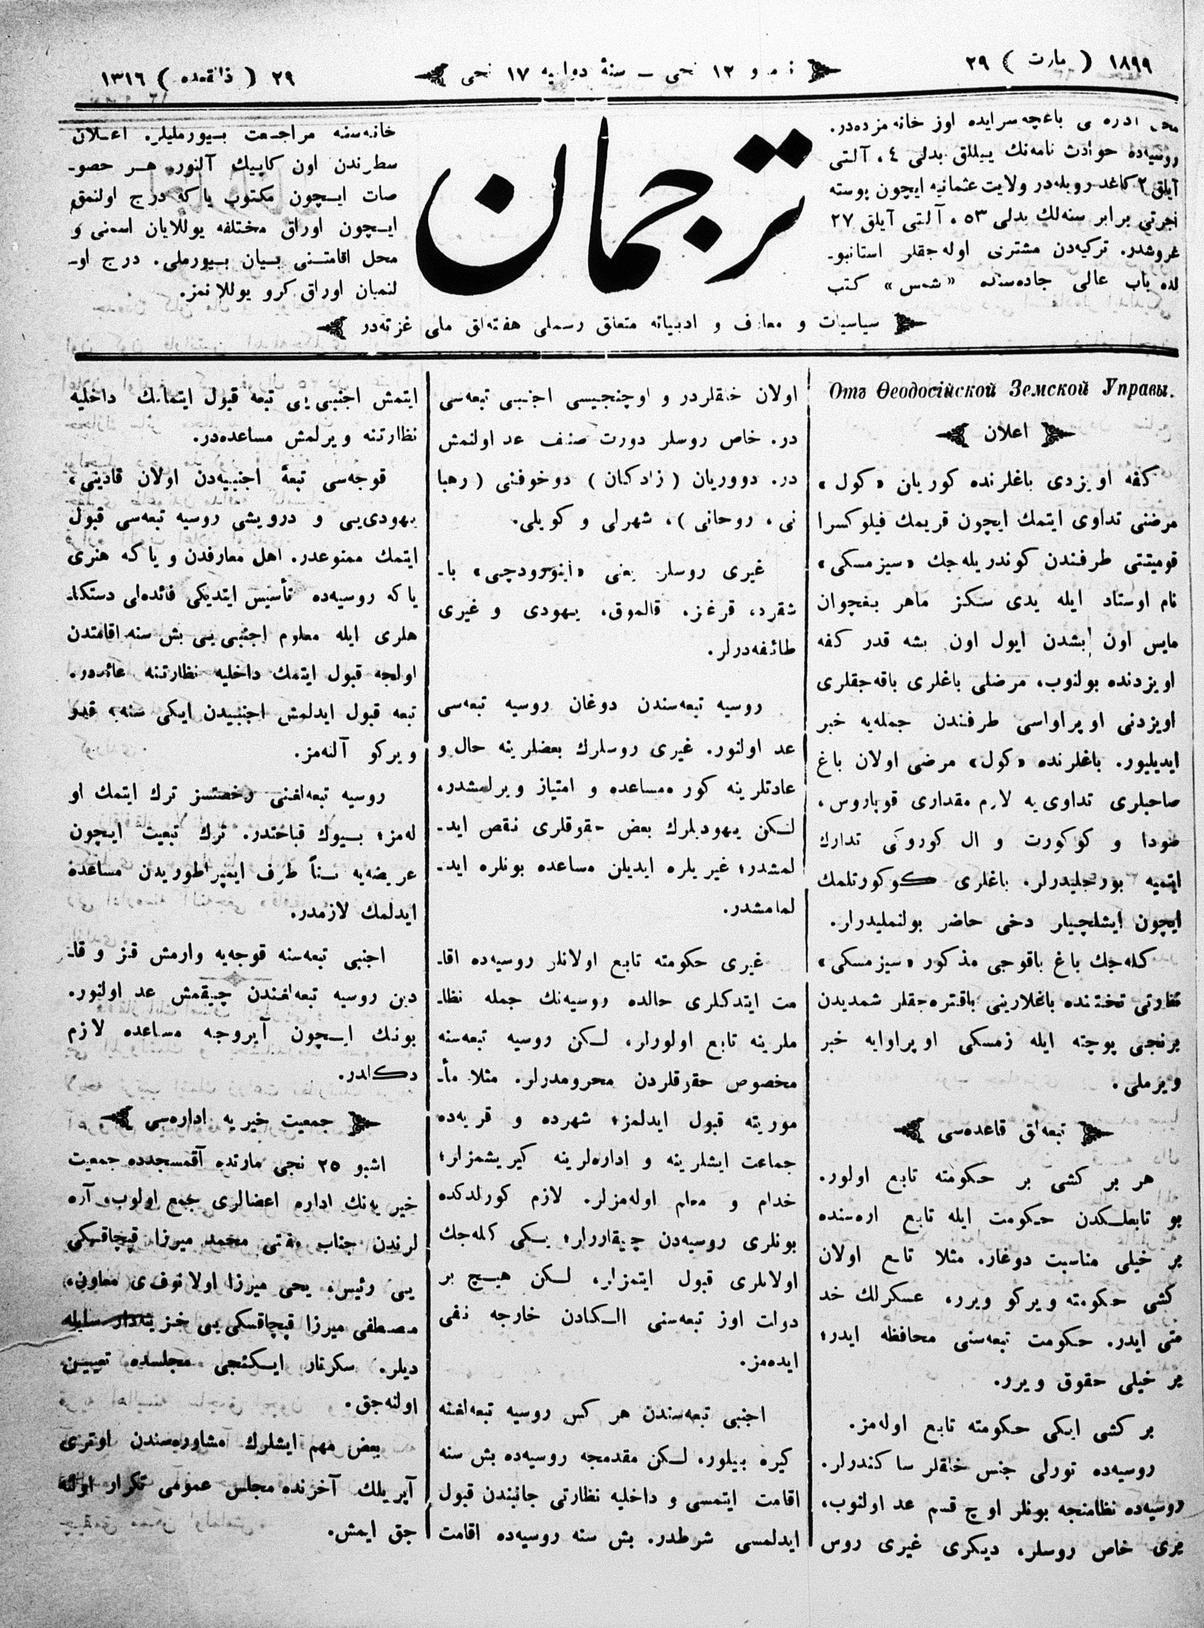 ١٨٩٩ ( مارت ) ٢٩
نومرو ١٢ نجی ــ سنهٔ دوامیه ١٧ نجی
٢٩ ( ذالقعده ) ١٣١٦
محل اداره سی باغچه سرایده اوز خانه مزده‌در.
روسیه‌ده حوادث نامه‌نك ییللق بدلی ٤، آلتی
آیلق ٢ كاغد روبله‌در ولایت عثمانیه ایچون پوسته
اجرتی برابر سنه‌لك بدلی ٥٣، آلتی آیلق ٢٧
غروشدر. تركیه‌دن مشتری اوله‌جقلر استانبو-
لده باب عالی جاده‌سنده «شمس» كتب
ترجمان
خانه‌سنه مراجعت بیورملیلر. اعلان
سطرندن اون كاپیك آلنور. هر خصو-
صات ایچون مكتوب یا كه درج اولنمق
ایچون اوراق مختلفه یوللایان اسمنی و
محل اقامتنی بیان بیورملی. درج او-
لنمیان اوراق كرو یوللانمز.
سیاسیات و معارف و ادبیاته متعلق رسملی هفته‌لق ملی غزته‌در
Отъ Ѳеодосійской Земской Управы.
اعلان
كفه اویزدی باغلرنده كوریان «كول»
مرضنی تداوی ایتمك ایچون قریمك فیلوكسرا
قومیتتی طرفندن كوندریله‌جك «سیزمسكی»
نام اوستاد ایله یدی سكز ماهر بغچوان
مایس اون بشدن ایول اون بشه قدر كفه
اویزدنده بولنوب، مرضلی باغلری باقه‌جقلری
اویزدنی اوپراواسی طرفندن جمله‌یه خبر
ایدیلیور. باغلرنده «كول» مرضی اولان باغ
صاحبلری تداوی‌یه لازم مقداری قوپاروس،
صودا و كوكورت و ال كوروكی تدارك
ایتمیه بورجلیدرلر. باغلری كوكورتلمك
ایچون ایشلچیلر دخی حاضر بولنملیدرلر.
كله‌جك باغ باقوجی مذكور «سیزمسكی»
نظارتی تحتنده باغلارینی باقتره‌جقلر شمدیدن
برنجی پوچته ایله زمسكی اوپراوایه خبر
ویرملی.
تبعه‌لق قاعده‌سی
هر بر كشی بر حكومته تابع اولور.
بو تابعلكدن حكومت ایله تابع اره‌سنده
بر خیلی مناسبت دوغار. مثلا تابع اولان
كشی حكومته ویركو ویرر، عسكرلك خد
متی ایدر. حكومت تبعه‌سنی محافظه ایدر؛
بر خیلی حقوق ویرر.
بر كشی ایكی حكومته تابع اوله‌مز.
روسیه‌ده تورلی جنس خلقلر ساكندرلر.
روسیه‌ده نظامنجه بونلر اوچ قسم عد اولنوب،
بری خاص روسلر، دیكری غیری روس
اولان خلقلردر و اوچنجیسی اجنبی تبعه‌سی
در. خاص روسلر دورت صنف عد اولنمش
در. دووریان (زادكان) دوخوفنی (رهبا
نی، روحانی)، شهرلی و كویلی.
غیری روسلر یعنی «اینورودچی» با-
شقرد، قرغز، قالموق، یهودی و غیری
طائفه‌درلر.
روسیه تبعه‌سندن دوغان روسیه تبعه‌سی
عد اولنور. غیری روسلرك بعضلرینه حال و
عادتلرینه كوره مساعده و امتیاز ویرلمشدر،
لكن یهودیلرك بعض حقوقلری نقص اید-
لمشدر؛ غیریلره ایدیلن مساعده بونلره اید-
لمامشدر.
غیری حكومته تابع اولانلر روسیه‌ده اقا-
مت ایتدكلری حالده روسیه‌نك جمله نظا-
ملرینه تابع اولورلر، لكن روسیه تبعه‌سنه
مخصوص حقوقلردن محرومدرلر. مثلا مأ-
موریته قبول ایدلمز؛ شهرده و قریه‌ده
جماعت ایشلرینه و اداره‌لرینه كیریشمزلر؛
خدام و معلم اوله‌مزلر. لازم كورلدكده
بونلری روسیه‌دن چیقارر؛ یكی كله‌جك
اولانلری قبول ایتمزلر، لكن هیچ بر
دولت اوز تبعه‌سنی الكادن خارجه نفی
ایده‌مز.
اجنبی تبعه‌سندن هر كس روسیه تبعه‌لغنه
كیره بیلور، لكن مقدمجه روسیه‌ده بش سنه
اقامت ایتمسی و داخلیه نظارتی جانبندن قبول
ایدلمسی شرطدر. بش سنه روسیه‌ده اقامت
ایتمش اجنبی‌یی تبعه قبول ایتمانك داخلیه
نظارتنه ویرلمش مساعده‌در.
قوجه‌سی تبعهٔ اجنبیه‌دن اولان قادینی،
یهودی‌یی و درویشی روسیه تبعه‌سی قبول
ایتمك ممنوعدر. اهل معارفدن و یا كه هنری
یا كه روسیه‌ده تأسیس ایتدیكی فائده‌لی دستكا-
هلری ایله معلوم اجنبی‌یی بش سنه اقامتدن
اولجه قبول ایتمك داخلیه نظارتنه عائددر.
تبعه قبول ایدلمش اجنبیدن ایكی سنه‌یه قدر
ویركو آلنه‌مز.
روسیه تبعه‌لغنی رخصتسز ترك ایتمك او
له‌مز؛ بیوك قباحتدر. ترك تبعیت ایچون
عریضه‌یه بناً طرف ایمپراطوریدن مساعده
ایدلمك لازمدر.
اجنبی تبعه‌سنه قوجه‌یه وارمش قز و قا-
دین روسیه تبعه‌لغندن چیقمش عد اولنور.
بونك ایچون آیروجه مساعده لازم
دكلدر.
جمعیت خیریه اداره‌سی
اشبو ٢٥ نجی مارتده آقمسجدده جمعیت
خیریه‌نك اداره اعضالری جمع اولوب، آره
لرندن جناب مفتی محمد میرزا قپچاقسكی
یی رئیس، یحی میرزا اولانوف‌ی معاون،
مصطفی میرزا قپچاقسكی‌یی خزینه‌دار سایله
دیلر. سكرتار ایكنجی مجلسده تعیین
اولنه‌جق.
بعض مهم ایشلرك مشاوره‌سندن اوتری
آپریلك آخرنده مجلس عمومی تكرار اوله
جق ایمش.